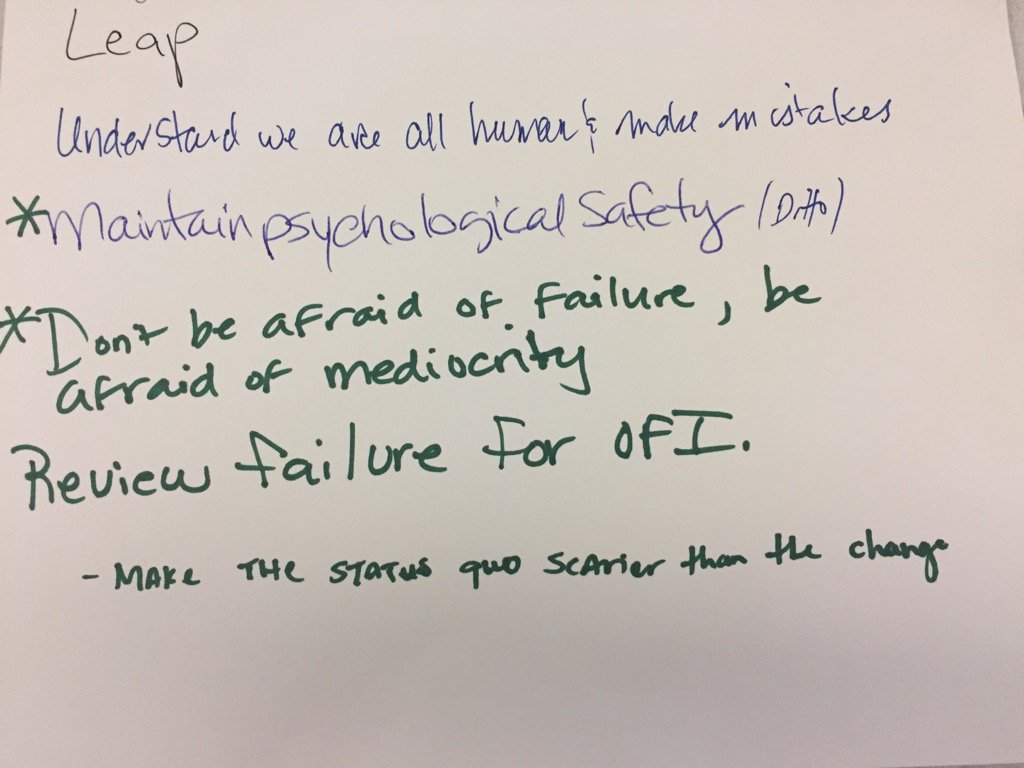 Leap
Understand we are all human & make mistakes
*Maintain psychological safety (Ditto)
*Don't be afraid of failure, be
afraid of mediocrity
Review failure for OFI.
- MAKE THE STATUS quo scarier than the change